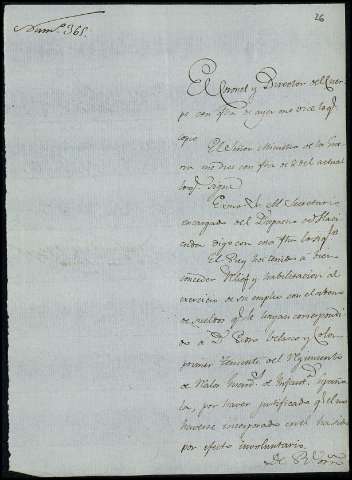 Num.º 361.
26
El Coronel y Director del Cuer-
po con fha de ayer me dice lo q.
sigue
El Señor Ministro de la Guerra
me dice con fha de 2 del actual
lo q.e sigue
Exmo Sr. El Secretario
encargado del Despacho de Haci-
enda digo con esta fha lo sig.te
El Rey ha tenido a bien
conceder relief y habilitacion al
exercicio de su empleo con el abono
de sueldos q.e le hayan correspondi-
do a D.n Pedro Velasco y Colon
primer Teniente del Regimiento
de Infant.
por haver justificado que el no
haverse incorporado en él ha sido
por efecto involuntario.